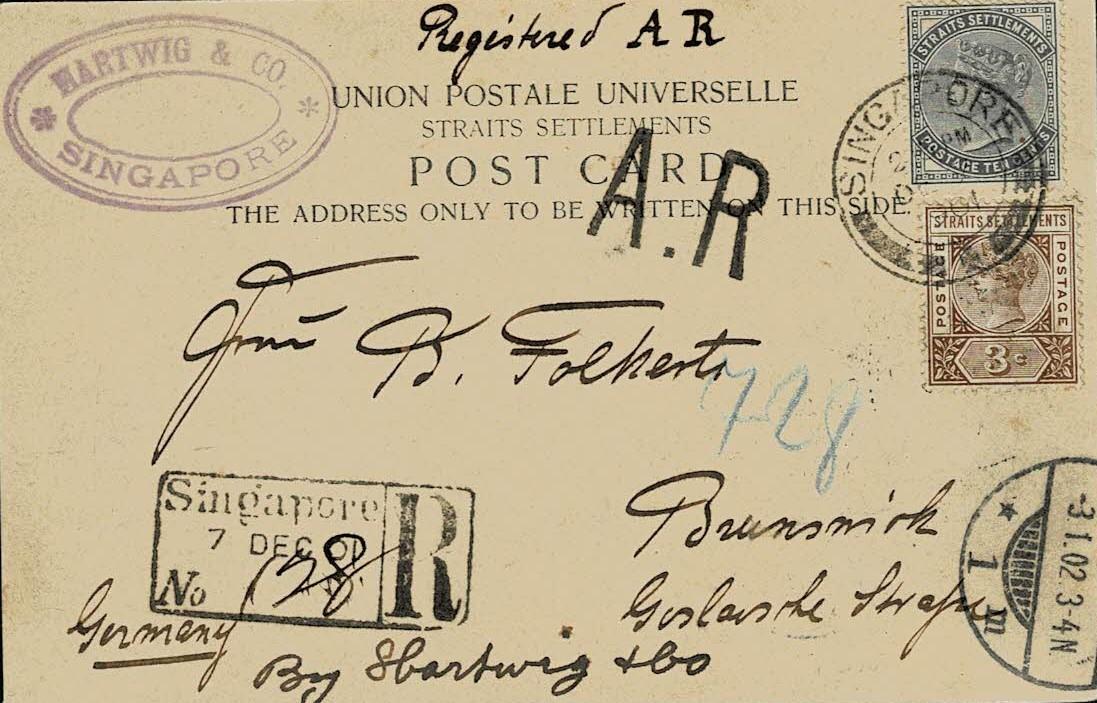 Registered A R
HARTWIG & CO.
SINGAPORE
UNION POSTALE UNIVERSELLE
STRAITS SETTLEMENTS
POST CARD
THE ADDRESS ONLY TO BE WRITTEN ON THIS SIDE.
A.R
STRAITS SETTLEMENTS
POSTAGE TEN CENTS
SINGAPORE
PM
STRAITS SETTLEMENTS
POSTAGE POSTAGE
3c
B. Folkerts
728
Singapore R
7 DEC 01
No 728
Brunswick
Goslarsche Straße
Germany
By Hartwig & Co
3.1.02.3-4N
1